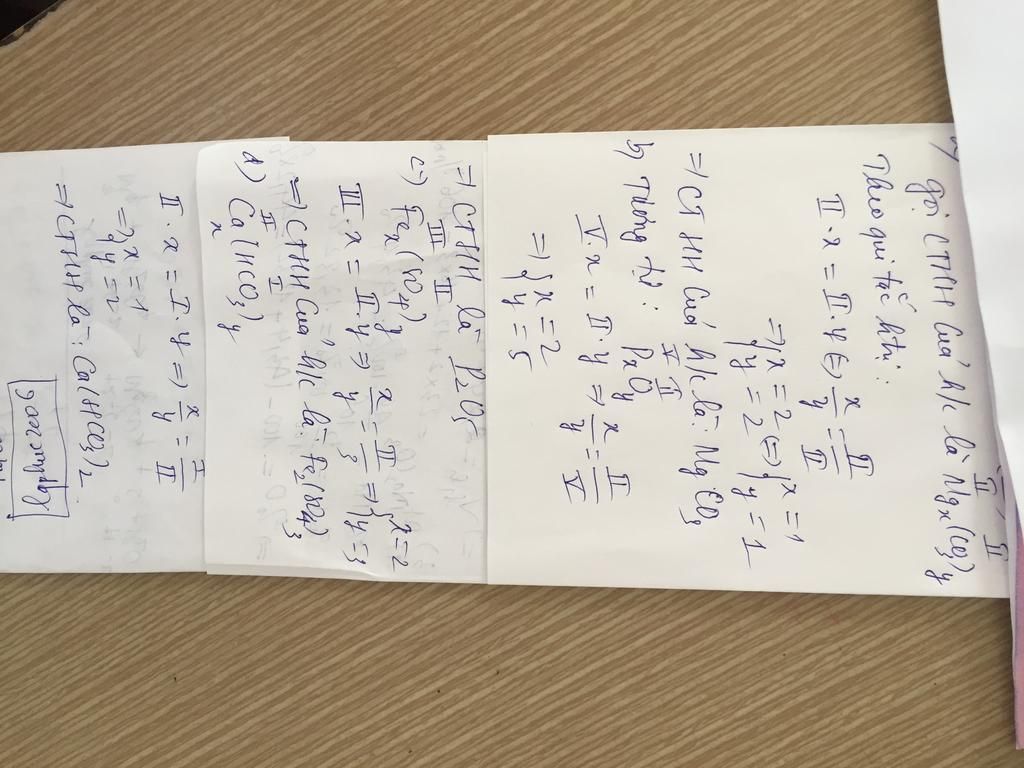 Gọi CTHH của h/c là Mgx(CO3)y
II II
Theo qui tắc htrị:
II . x = II . y ⇔ x/y = II/II
⇒ { x = 2 y = 2 ⇔ { x = 1 y = 1
⇒ CTHH của h/c là: MgCO3
b) Tương tự: PxOy
V II
V . x = II . y ⇒ x/y = II/V
⇒ { x = 2 y = 5
⇒ CTHH là P2O5
III II
c) Fex(SO4)y
III . x = II . y ⇒ x/y = II/III ⇒ { x = 2 y = 3
⇒ CTHH của h/c là: Fe2(SO4)3
II I
d) Cax(HCO3)y
II . x = I . y ⇒ x/y = I/II
⇒ x = 1
y = 2
⇒ CTHH là: Ca(HCO3)2